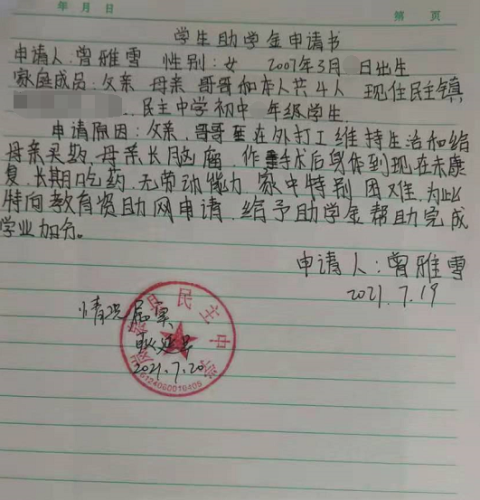 年 月 日 第 页
学生助学金申请书
申请人:曾雅雪 性别:女 2007年3月 日出生
家庭成员:父亲 母亲 哥哥和本人共4人 现住民主镇
民主中学初中 年级学生.
申请原因:父亲.哥哥 在外打工维持生活和给
母亲买药,母亲长脑瘤,作 手术后身体到现在未康
复,长期吃药,无劳动能力,家中特别困难,为此
特向教育资助网申请,给予助学金帮助完成
学业加分。
申请人:曾雅雪
2021.7.19
民主中
情况属实
2021.7.20